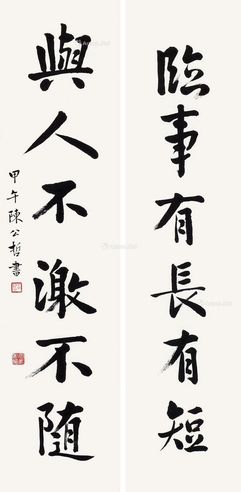 臨事有長有短
與人不激不随
甲午陳公哲書